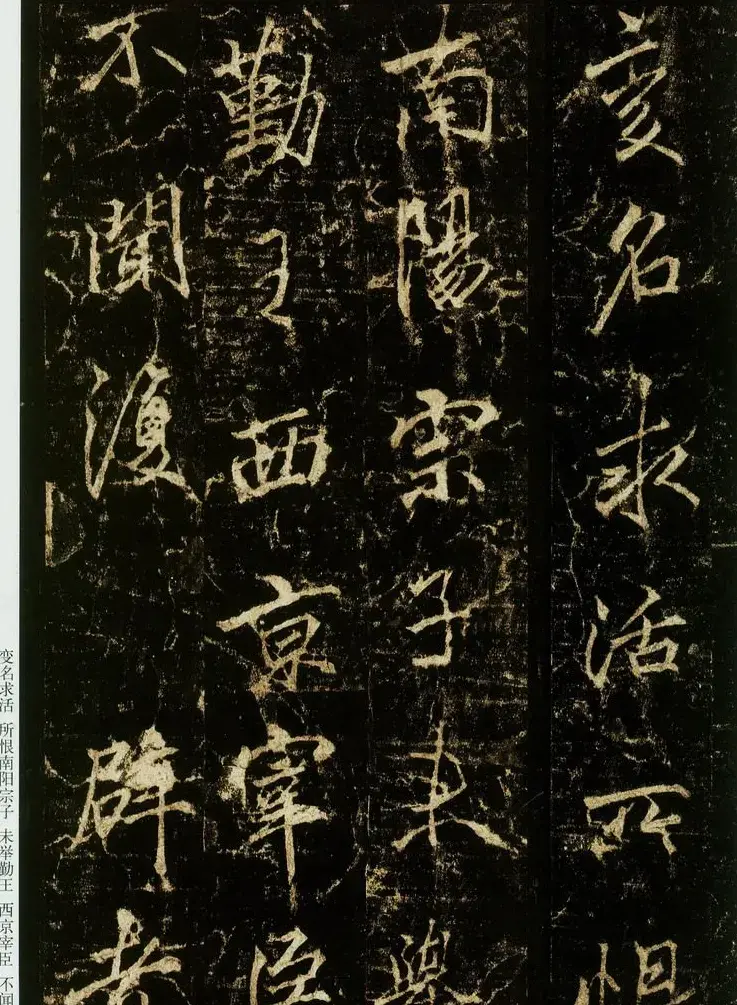 变名求活所恨
南陽宗子未舉
勤王西京宰臣
不聞復辟者
变名求活 所恨南阳宗子 未举勤王 西京宰臣 不闻